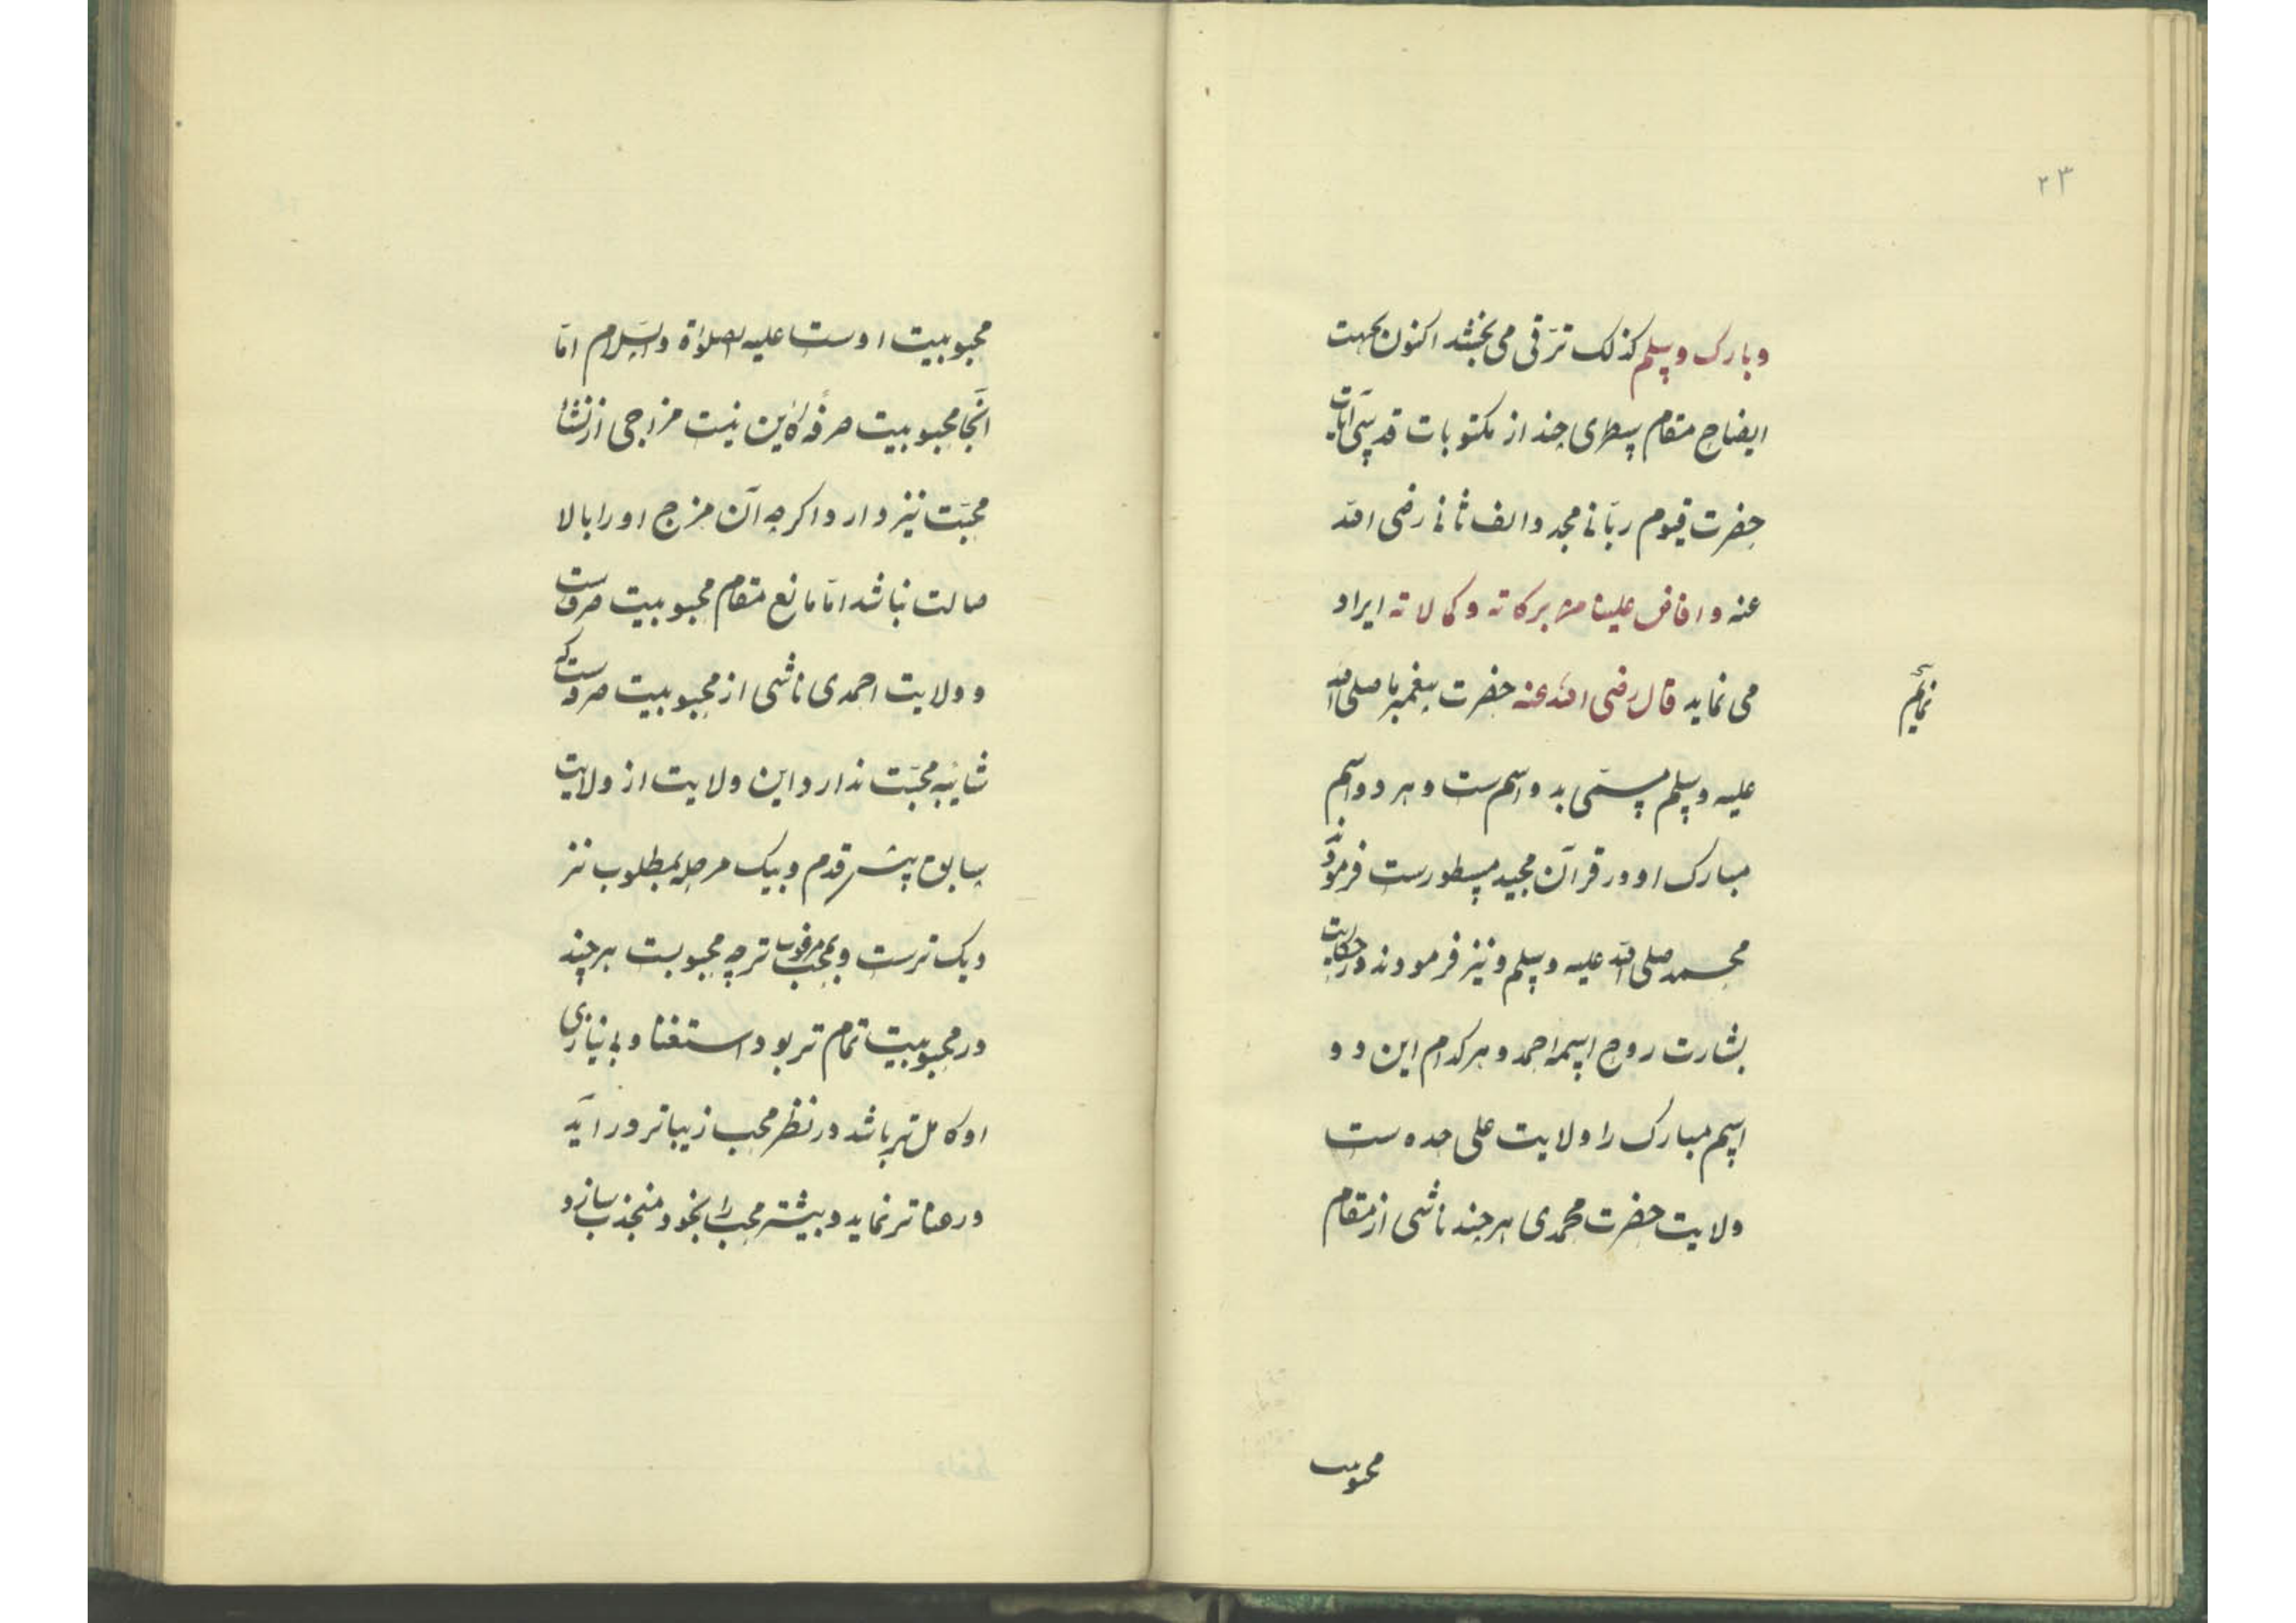 ۲۳
وبارک وسلم کذلک ترقی می بخشد اکنون بجهت
ایضاح مقام سطری چند از مکتوبات قدسی آیات
حضرت قیوم ربّانی مجدد الف ثانی رضی الله
عنه و افاض علینا من برکاته و کمالاته ایراد
می نماید قال رضی الله عنه حضرت پیغمبر ما صلی الله
نمایم
علیه وسلم مسمّی بدو اسم ست و هر دو اسم
مبارک او در قرآن مجید مسطور ست فرمودند
محمد صلی الله علیه وسلم و نیز فرمودند در حکایت
بشارت روح اسمه احمد و هر کدام این دو
اسم مبارک را ولایت علی حده ست
ولایت حضرت محمدی هر چند ناشی از مقام
محبوبیت
محبوبیت اوست علیه الصلوٰة والسّلام امّا
آنجا محبوبیت صرفهٔ کاین نیست مزاجی از نشأ
محبّت نیز دارد اگرچه آن مزج او را بالا
صالت نباشد امّا مانع مقام محبوبیت صرف ست
و ولایت احمدی ناشی از محبوبیت صرف ست که
شایبه محبّت ندارد و این ولایت از ولایت
سابق پیش قدم و بیک مرحله بمطلوب نز
دیک ترست و بمحب مرغوب تر چه محبوبست هر چند
در محبوبیت تمام تر بود استغنا و بی نیازی
او کامل تر باشد در نظر محب زیباتر در آید
و رعنا تر نماید و بیشتر محب را بخود منجذب سازد